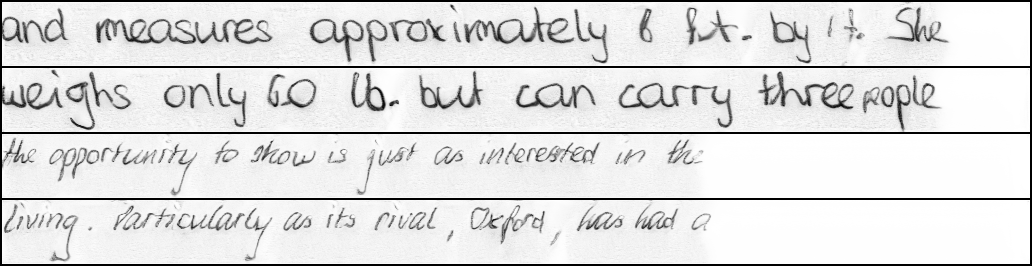 and measures approximately 6 ft. by 1 ft. She
weighs only 60 lb. but can carry three people
the opportunity to show is just as interested in the
living. Particularly as its rival, Oxford, has had a